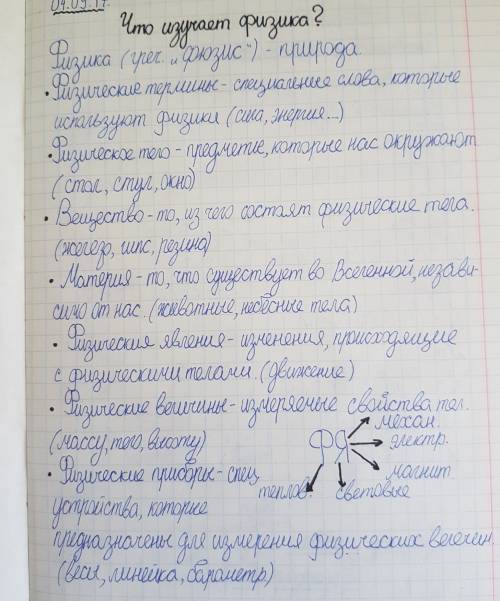 04.09.17.
Что изучает физика?
Физика (греч. „фюзис“) - природа
• Физические термины - специальные слова, которые
используют физики (сила, энергия...)
• Физическое тело - предметы, которые нас окружают
(стол, стул, окно)
• Вещество - то, из чего состоят физические тела.
(железо, гипс, резина)
• Материя - то, что существует во Вселенной, незави-
симо от нас. (животные, небесные тела)
• Физическия явления - изменения, происходящие
с физическими телами. (движение)
• Физические величины - измеряемые свойства тел.
(массу, тело, высоту)
ФЯ
механ.
электр.
магнит.
световые
теплов.
• Физические приборы - спец.
устройства, которые
предназначены для измерения физических величин.
(весы, линейка, барометр)